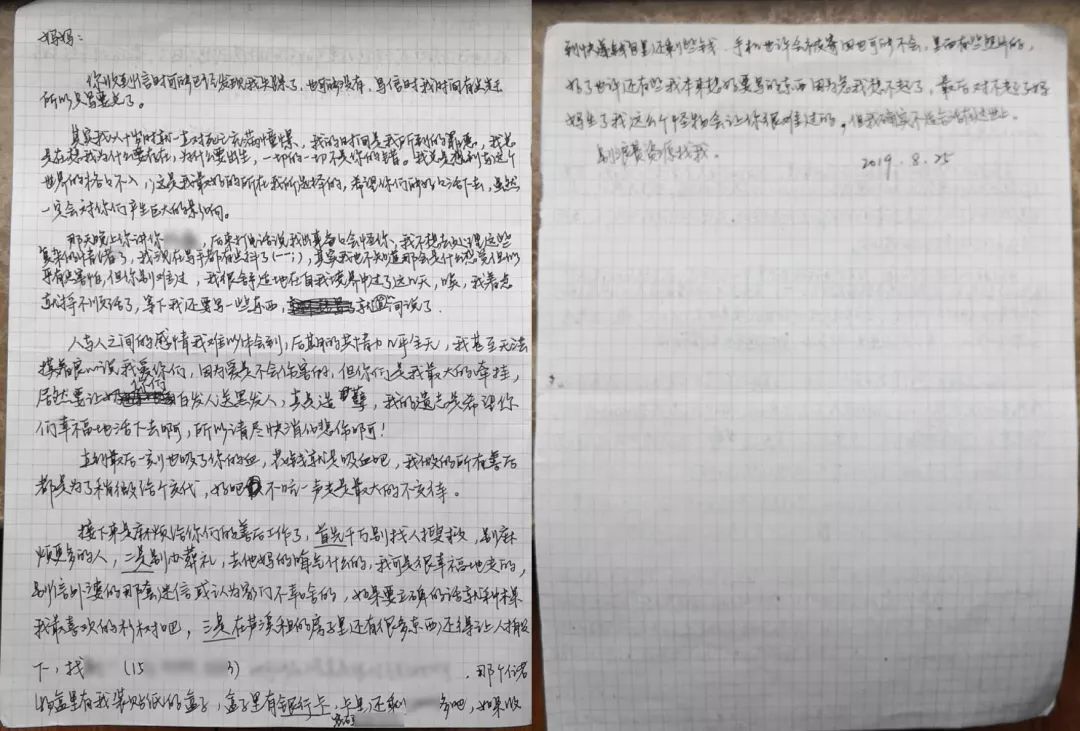 妈妈：
你收到信时可能已经发现我失踪了，也可能没有，写信时我时间有些赶
所以只写要点了。
其实我从十岁时就一直对死亡充满憧憬，我的时间是我所
是在想我为什么要存在，为什么要出生，一切的一切不是你的错。我总是想到去这个
世界的格格不入，这是我最好的所在我所选择的，希望你们能好好活下去，虽然
一定会对你们产生巨大的影响。
那天晚上你讲你，后来打电话说我出事会怪你，我不想去处理这些
复杂的情绪了，我现在写字都有些抖了(一；)，其实我也不知道那会是什么感觉但似
乎有些害怕，但你别难过，我很舒适地在自我境界中过了这几天，唉，我看着
等下我还要写一些东西，
人与人之间的感情我难以体会到，后期的共情力几乎全无，我甚至无法
摸着良心说我爱你们，因为爱是不会伤害的，但你们是我最大的牵挂，
居然要让你们白发人送黑发人，真是造孽，我的遗志是希望你
们幸福地活下去啊，所以请尽快消化悲伤啊！
直到最后一刻也吸了你的血，花钱就是吸血吧，我做的所有善后
都是为了稍微给个交代，好吧不吭一声走是最大的不交待。
接下来是麻烦给你们的善后工作了，首先千万别找人搜救，别麻
烦更多的人，二是别办葬礼，去他妈的晦气什么的，我可是很幸福地走的，
别信外婆的那套迷信或认为家门不幸啥的，如果要立碑的话就种棵
我最喜欢的杉树吧，三是在租的房子里还有很多东西还得让人搬
下，找 (15 3) ，那个储
物盒里有我装贴纸的盒子，盒子里有银行卡，卡里还剩 多吧，如果收
到快递钱包里还剩些钱，手机也许会被寄回也可能不会，里面有些照片的，
好了也许还有些我本来想好要写的东西因为急我想不起了，最后对不起了妈
妈生了我这么个怪物会让你很难过的，但我确实不适合活在这世上。
别浪费资源找我。
2019.8.25